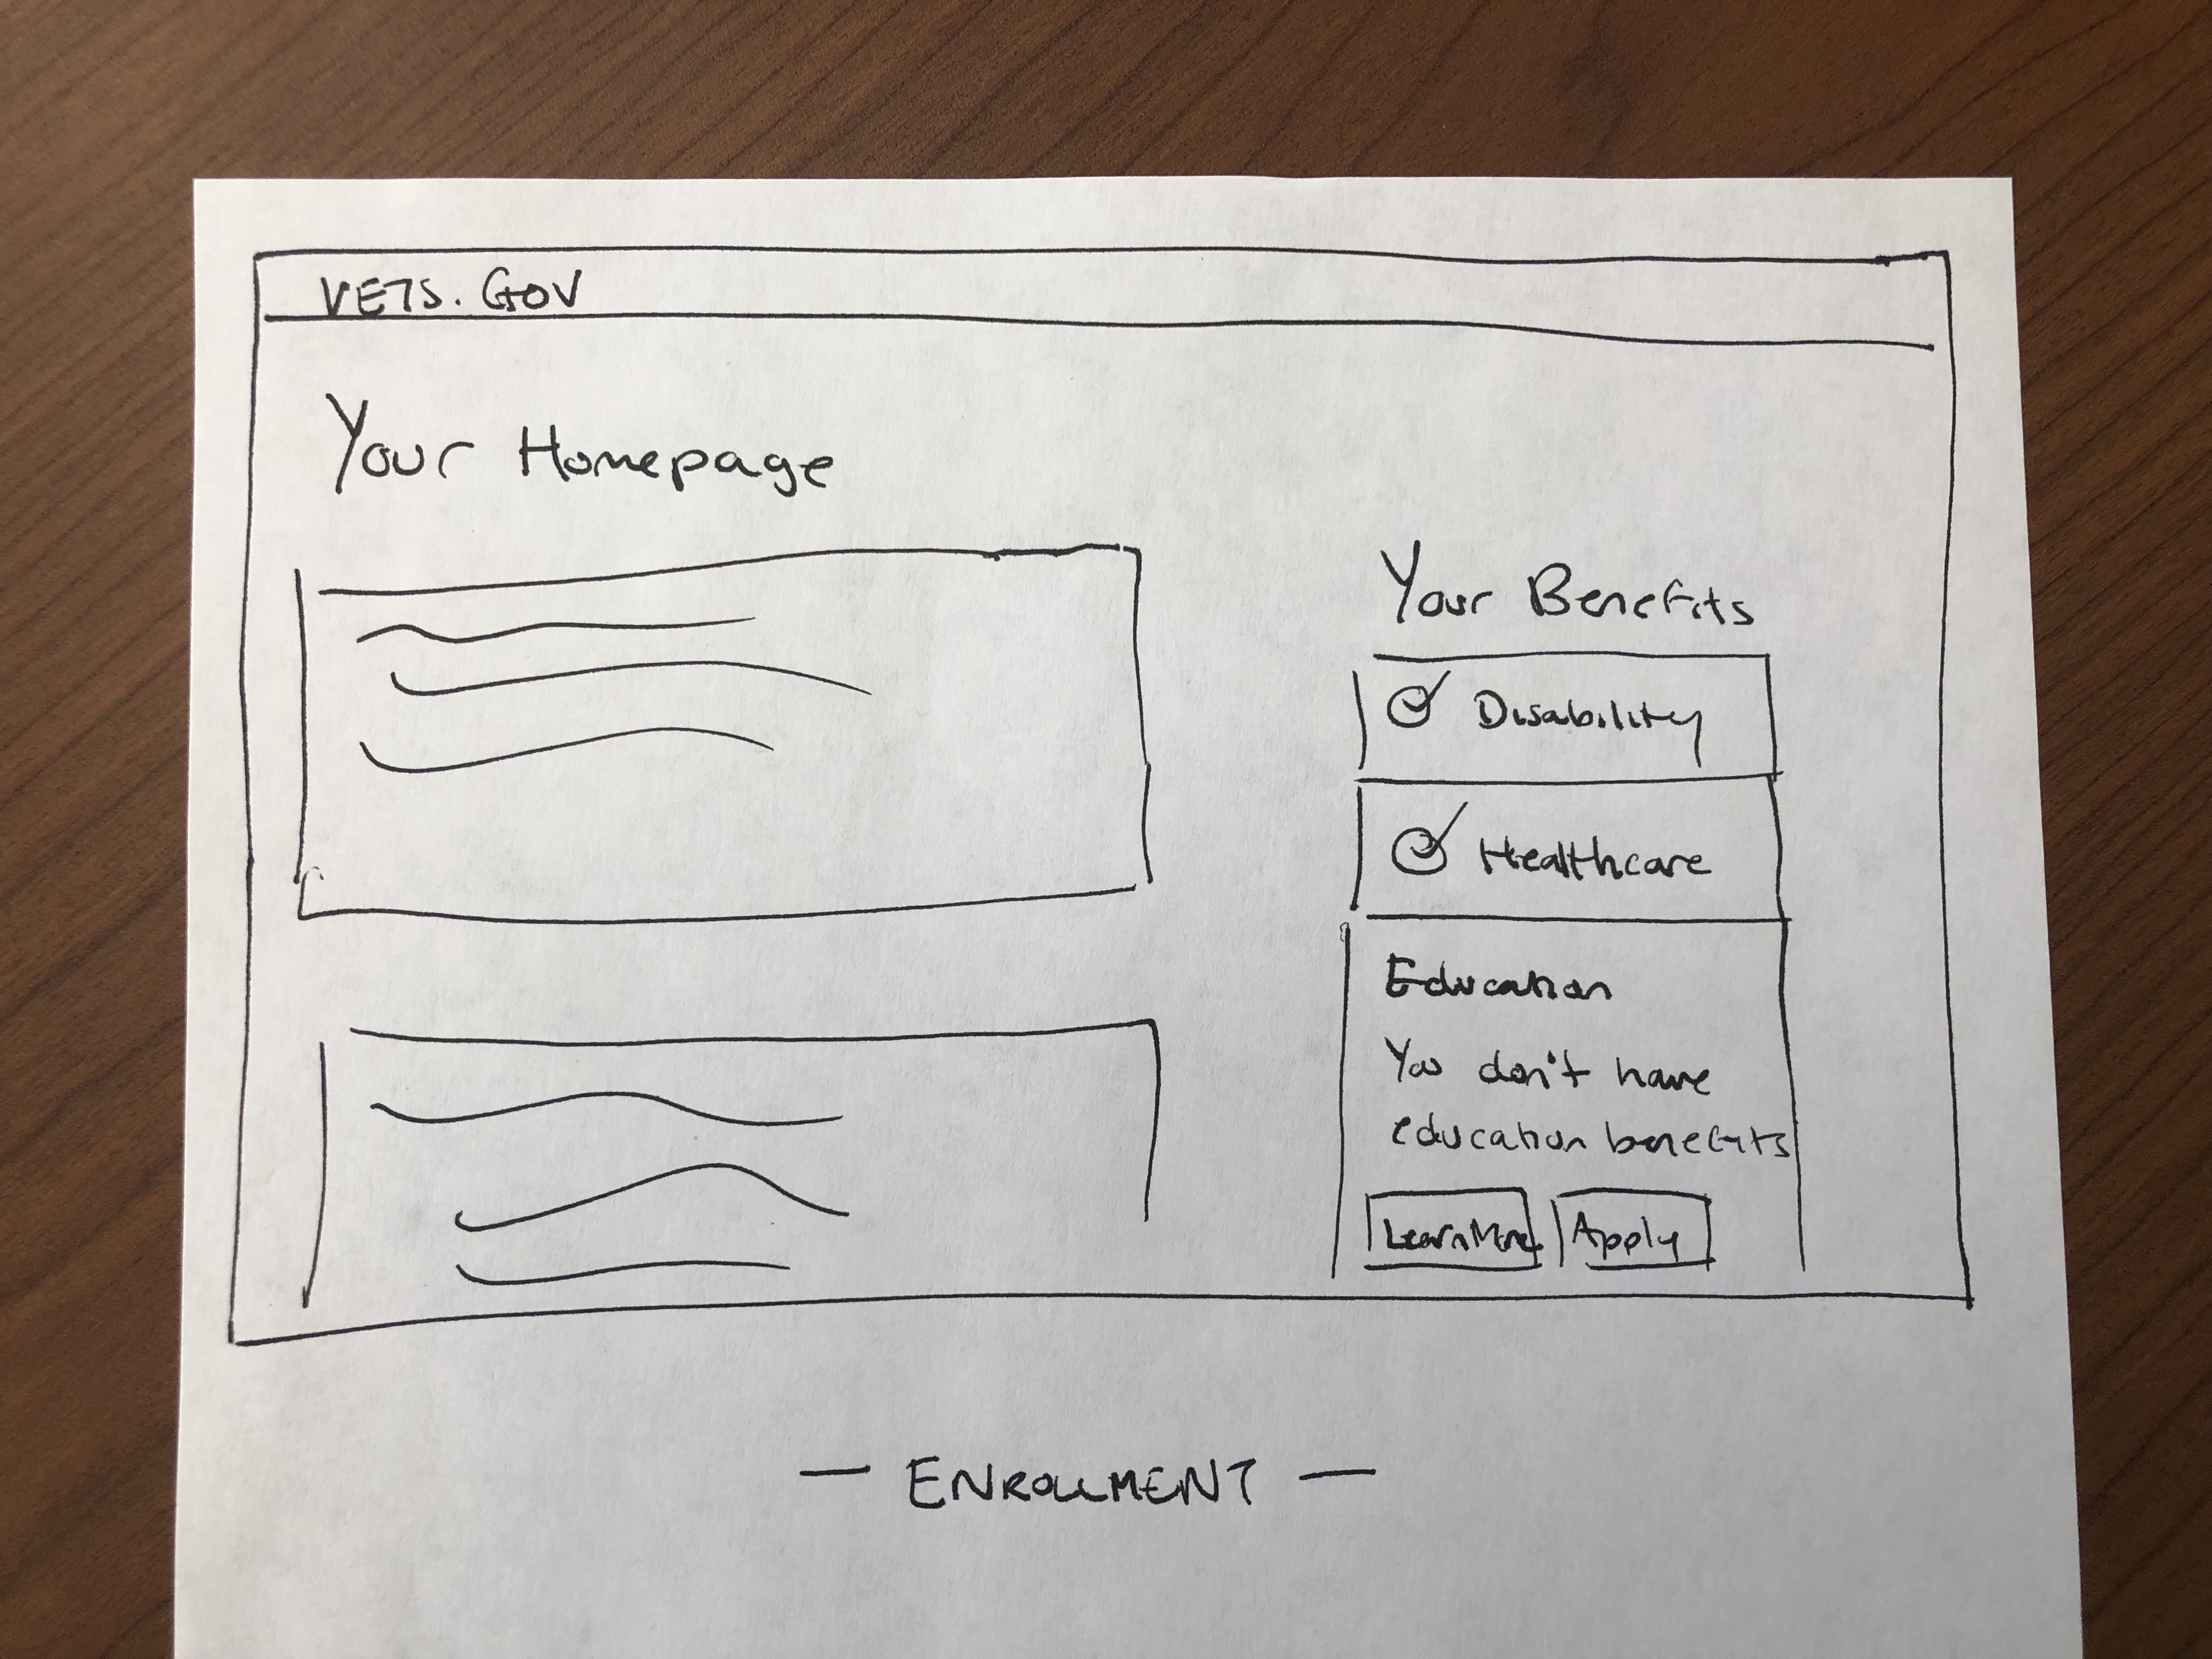 VETS.GOV
Your Homepage
Your Benefits
Disability
Healthcare
Education
You don't have
education benefits
Learn More
Apply
— ENROLLMENT —